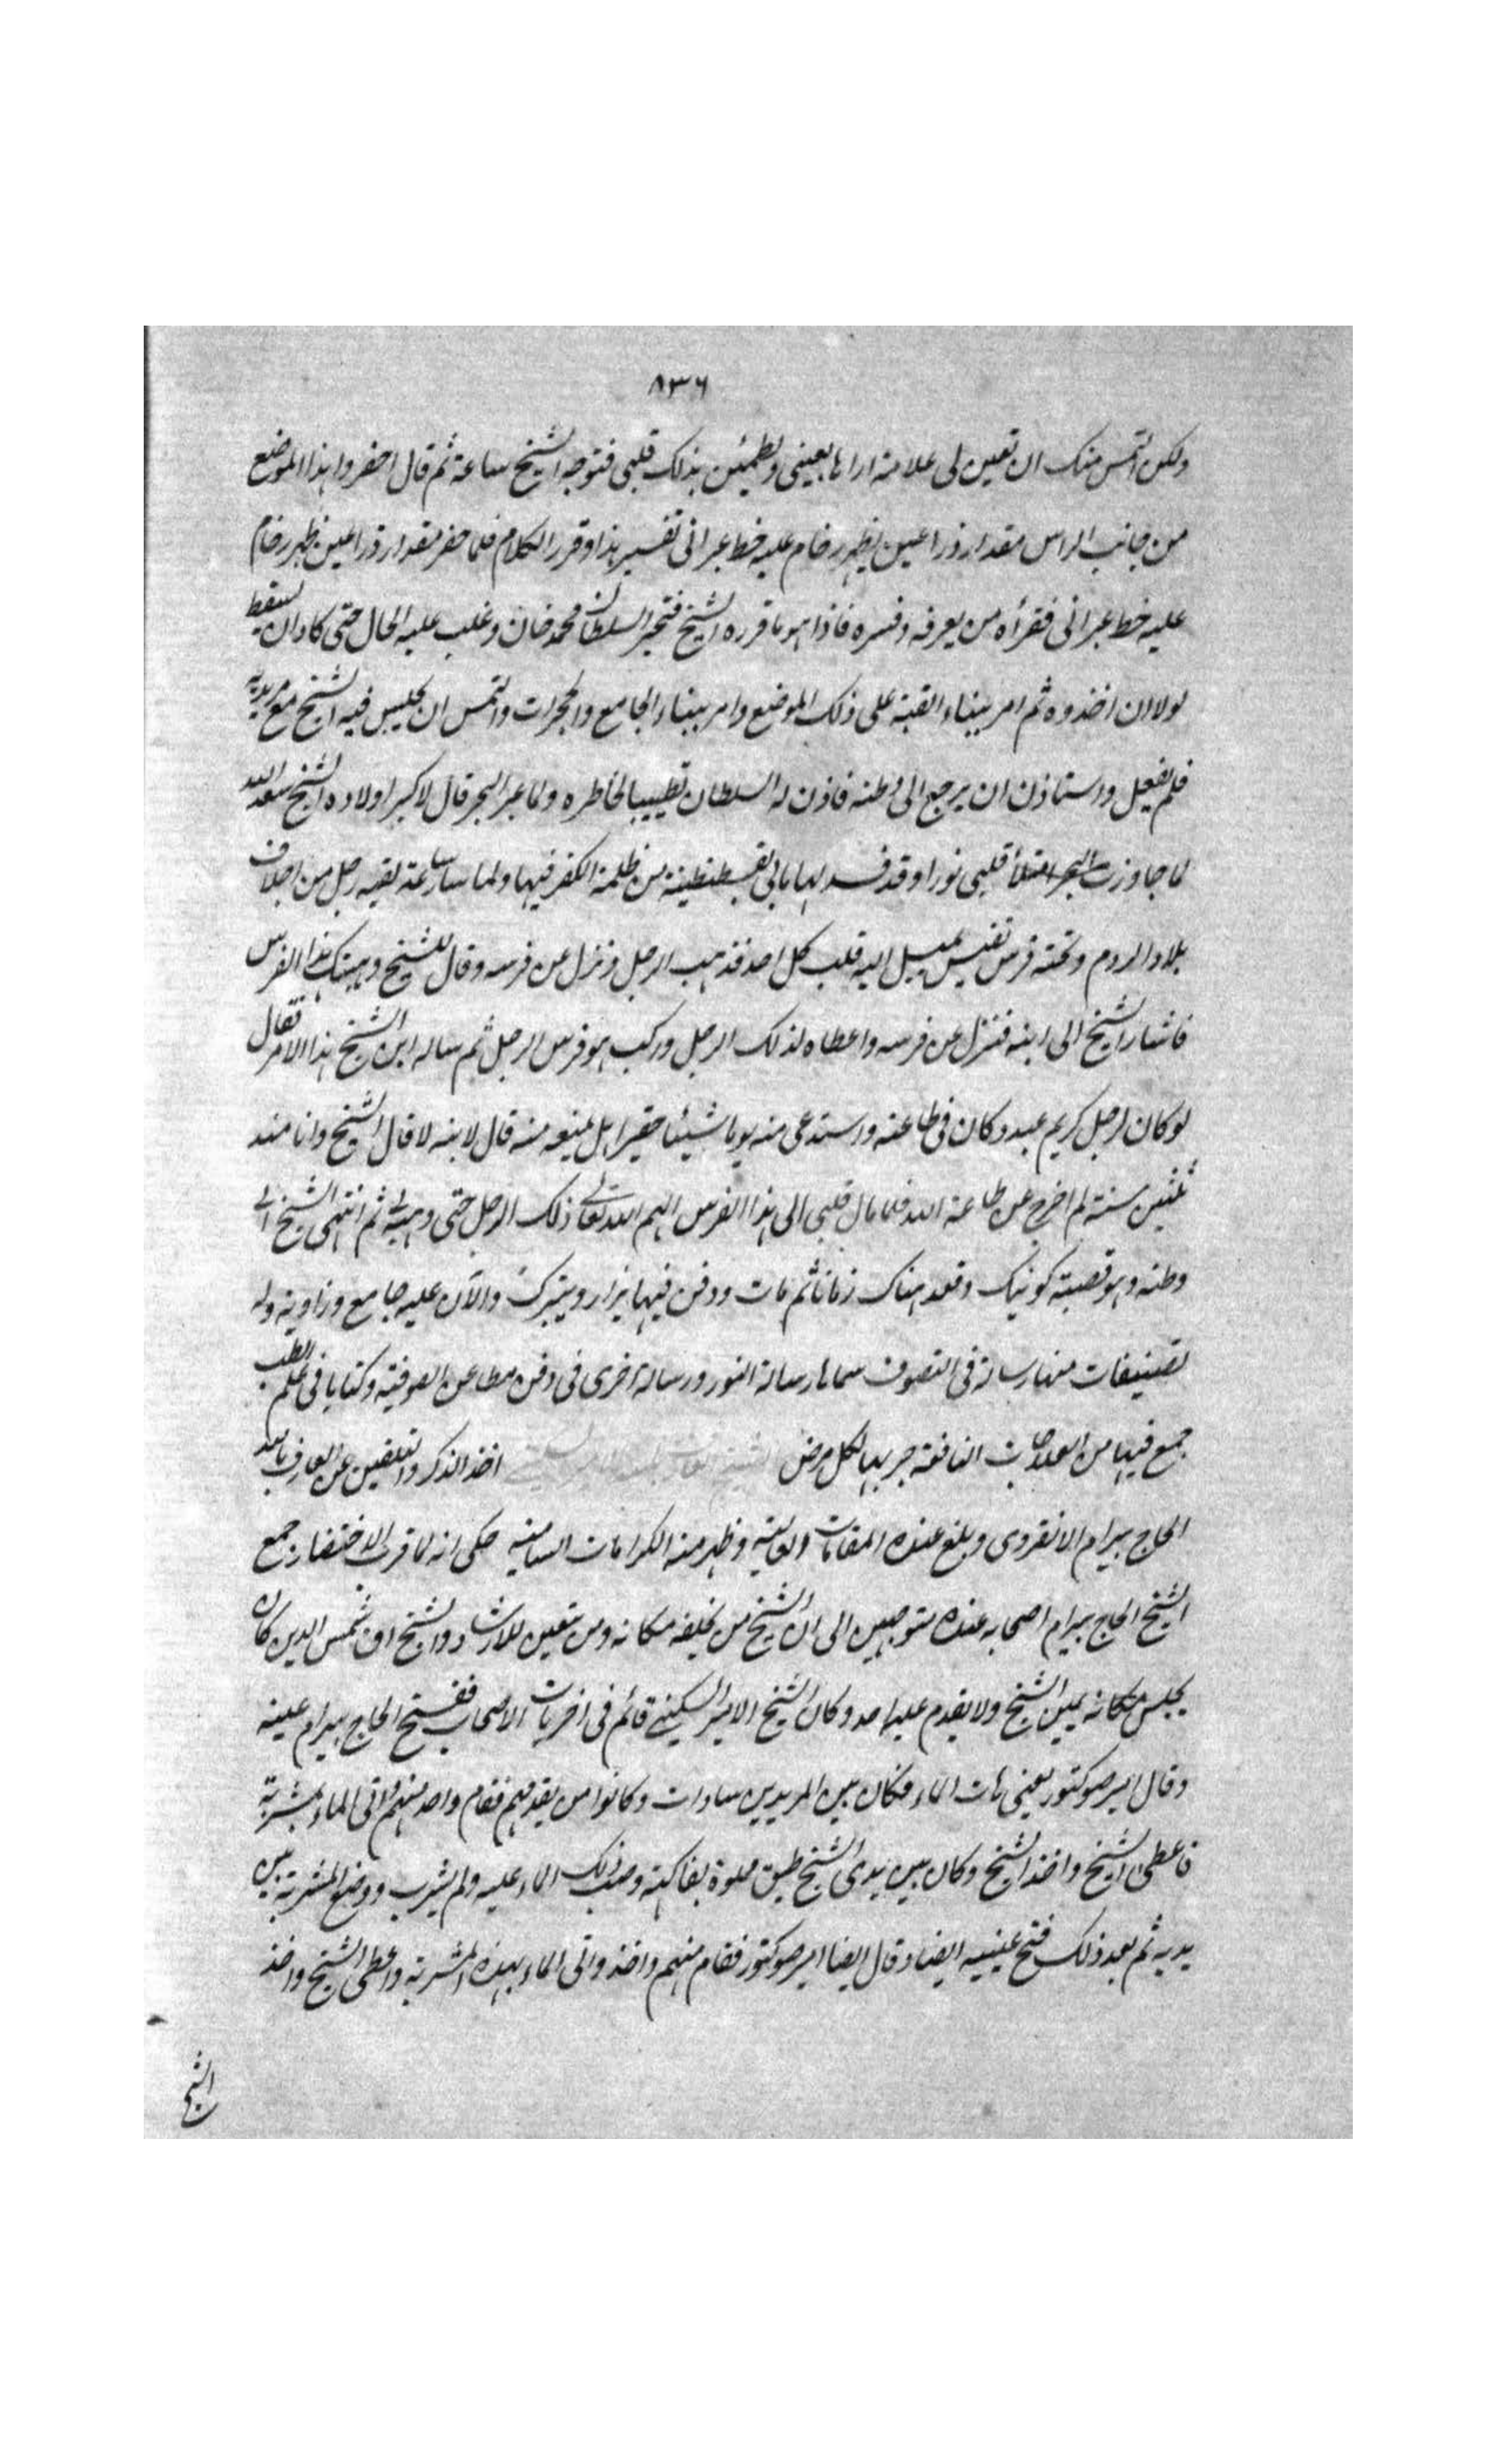 ٨٣٦
ولكن التمس منك ان تعين لى علامة اراها بعينى ويطمئن بذلك قلبى فتوجه الشيخ ساعة ثم قال احفروا هذا الموضع
من جانب الراس مقدار ذراعين يظهر رخام عليه خط عبرانى تفسير هذا وقرر الكلام فلما حفر مقدار ذراعين ظهر رخام
عليه خط عبرانى فقرأه من يعرفه وفسره فاذا هو ما قرره الشيخ فتحير السلطان محمد خان وغلب عليه الحال حتى كاد ان يسقط
لولا ان اخذوه ثم امر ببناء القبة على ذلك الموضع وامر ببناء الجامع والحجرات والتمس ان يجلس فيه الشيخ مع مريديه
فلم يفعل واستاذن ان يرجع الى وطنه فاذن له السلطان تطييبا لخاطره ولما عبر البحر قال لاكبر اولاده الشيخ سعد الله
لما جاوزت البحر امتلأ قلبى نورا وقد فسد الهاماتى بقسطنطينة من ظلمة الكفر فيها ولما سار ساعة لقيه رجل من اجلاف
بلاد الروم وتحته فرس نفيس يميل اليه قلب كل احد فذهب الرجل ونزل عن فرسه وقال للشيخ وهبتك هذا الفرس
فاشار الشيخ الى ابنه فنزل عن فرسه واعطاه لذلك الرجل وركب هو فرس الرجل ثم ساله ابن الشيخ هذا الامر فقال
لو كان لرجل كريم عبد وكان فى طاعته واستدعى منه يوما شيئا حقيرا هل يمنعه منه قال لابنه لا قال الشيخ وانا منذ
ثلثين سنة لم اخرج عن طاعة الله فلما مال قلبى الى هذا الفرس الهم الله تعالى ذلك الرجل حتى وهبه لى ثم انتهى الشيخ الى
وطنه وهو قصبة كونيك وقعد هناك زمانا ثم مات ودفن فيها يزار ويتبرك والآن عليه جامع وزاوية وله
تصنيفات منها رسالة فى التصوف سماها رسالة النور ورسالة اخرى فى دفن مطاعن الصوفية وكتابا فى علم الطب
جمع فيها من العلاجات النافعة جربها لكل مرض اخذ الذكر والتلقين عن العارف بالله
الحاج بيرام الانقروى وبلغ عنده المقامات العالية وظهر منه الكرامات السامية حكى انه لما قرب الاحتضار جمع
الشيخ الحاج بيرام اصحابه عنده متوجهين الى ان الشيخ من يخلفه مكانه ومن يتعين للارشاد والشيخ اق شمس الدين كان
يجلس مكانه يمين الشيخ ولا يقدم عليه احد وكان الشيخ الامير السكينى قائم فى اخريات الاصحاب ففتح الحاج بيرام عينه
وقال امير صو كتور يعنى هات الماء فكان بين المريدين سادات وكانوا من يقدمهم فقام واحد منهم واتى الماء بمشربة
فاعطى الشيخ واخذ الشيخ وكان بين يدى الشيخ طبق مملوة بفاكهة وصب ذلك الماء عليه ولم يشرب ووضع المشربة بين
يديه ثم بعد ذلك فتح عينيه ايضا وقال ايضا امير صو كتور فقام منهم واخذ واتى الماء بهذه المشربة واعطى الشيخ واخذ
الشيخ